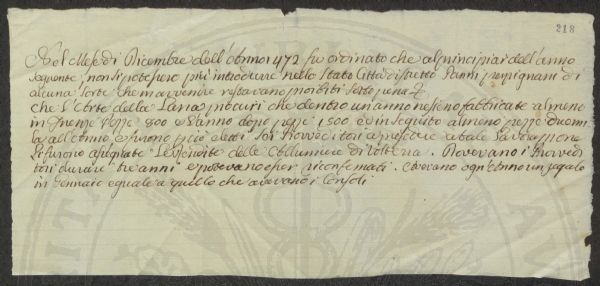 218
Nel Mese di Dicembre dell'Anno 1472 fu ordinato che al principiar dell'anno
seguente, non si potessero più introdurre nello Stato Città distretto Panni perpignani di
alcuna sorte che in avvenire restavano proibiti sotto pena
che l'Arte della Lana procuri che dentro un anno ne siano fabbricate almeno
in Firenze Pezze 800 e l'anno dopo pezze 1500. ed in seguito almeno pezze Duemi
la all'Anno, e furono perciò eletti Sei Provveditori a presedere a tale Lavorazione
li furono assegnate le vendite delle di Volterra. Dovevano i Provvedi
tori durare tre anni e potevano esser riconfermati. Avevano ogn'Anno un regalo
in Gennaio eguale a quello che avevano i Consoli